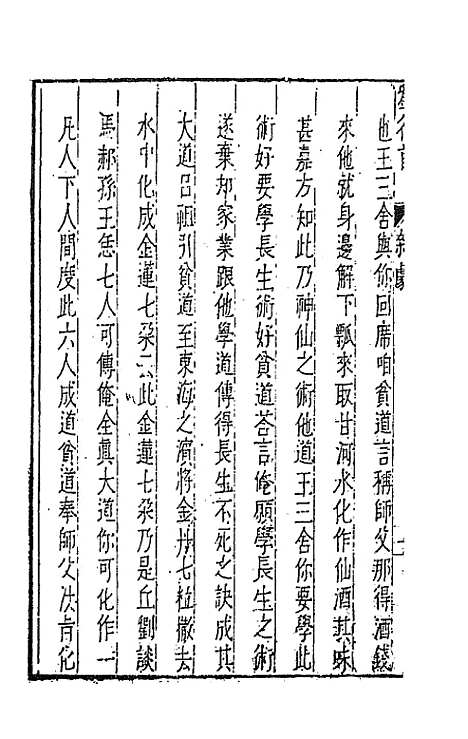 也王三舍與你回席咱貧道言稱師父那得酒錢
來他就身邊解下瓢來取甘河水化作仙酒其味
甚嘉方知此乃神仙之術他道王三舍你要學此
術好要學長生術好貧道荅言俺願學長生之術
遂棄却家業跟他學道傳得長生不死之訣成其
大道呂祖引貧道至東海之濵將金丹七粒撒去
水中化成金蓮七朶云此金蓮七朶乃是丘劉談
馬郝孫王恁七人可傳俺全眞大道你可化作一
凡人下人間度此六人成道貧道奉師父法旨化